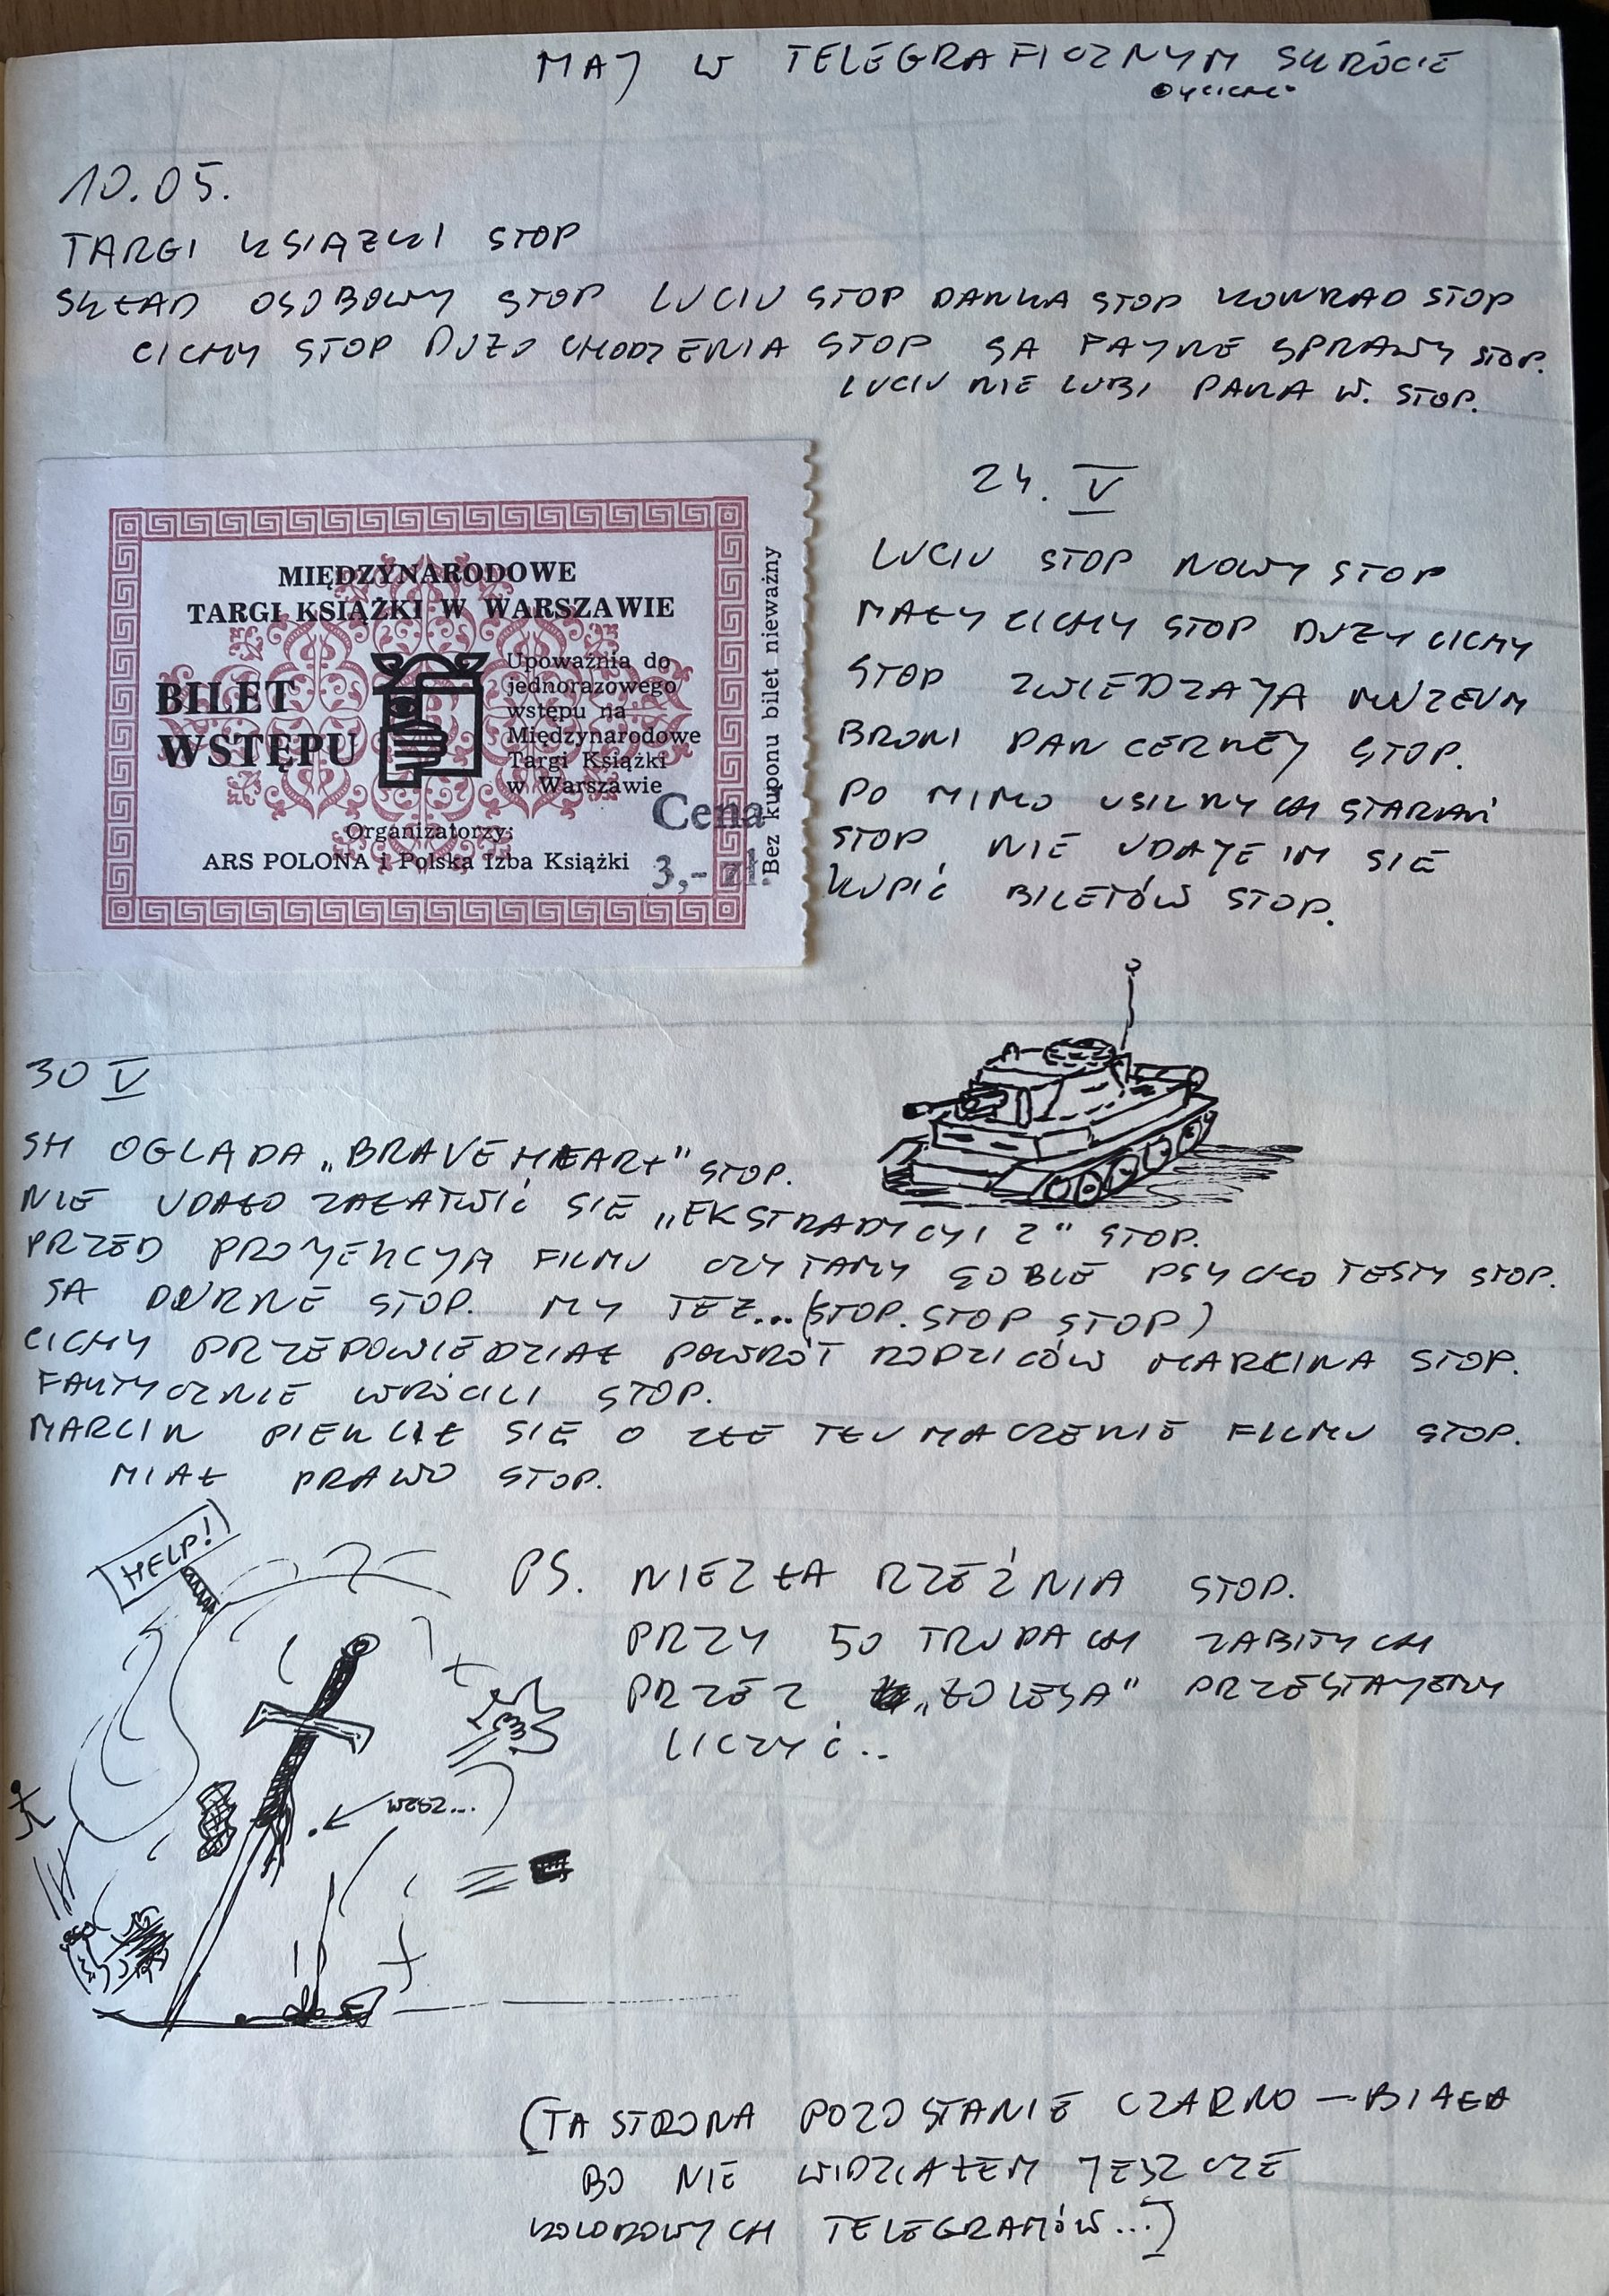 MAJ W TELEGRAFICZNYM SKRÓCIE
10.05.
TARGI KSIĄZKI STOP
SKŁAD OSOBOWY STOP LUCIU STOP DANKA STOP KONRAD STOP
CICHY STOP DUZO CHODZENIA STOP SA FAJNE SPRAWY STOP.
LUCIU NIE LUBI PANA W. STOP.
MIĘDZYNARODOWE
TARGI KSIĄŻKI W WARSZAWIE
BILET
WSTĘPU
Upoważnia do
jednorazowego
wstępu na
Międzynarodowe
Targi Książki
w Warszawie
Cena
3,- zł.
Organizatorzy:
ARS POLONA i Polska Izba Książki
Bez kuponu bilet nieważny
24. V
LUCIU STOP NOWY STOP
MAŁY CICHY STOP DUZY CICHY
STOP ZWIEDZAJA MUZEUM
BRONI PANCERNEJ STOP.
PO MIMO USILNYCH STARAŃ
STOP, NIE UDAJE IM SIE
KUPIĆ BILETÓW STOP.
30 V
SH OGLADA „BRAVE HEART" STOP.
NIE UDAŁO ZAŁATWIĆ SIE „EKSTRADYCJI 2" STOP.
PRZED PROJEKCJA FILMU CZYTAMY SOBIE PSYCHO TESTY STOP.
SA DURNE STOP. MY TEZ...(STOP. STOP STOP)
CICHY PRZEPOWIEDZIAŁ POWRÓT RODZICÓW MARCINA STOP.
FAKTYCZNIE WRÓCILI STOP.
MARCIN PIEKLIŁ SIE O ZŁE TŁUMACZENIE FILMU STOP.
MIAŁ PRAWO STOP.
HELP!
PS. NIEZŁA RZEŹNIA STOP.
PRZY 50 TRUPACH ZABITYCH
PRZEZ „ŁOLESA" PRZESTAJEMY
LICZYĆ..
WESZ...
(TA STRONA POZOSTANIE CZARNO – BIAŁA
BO NIE WIDZIAŁEM JESZCZE
KOLOROWYCH TELEGRAMÓW...)